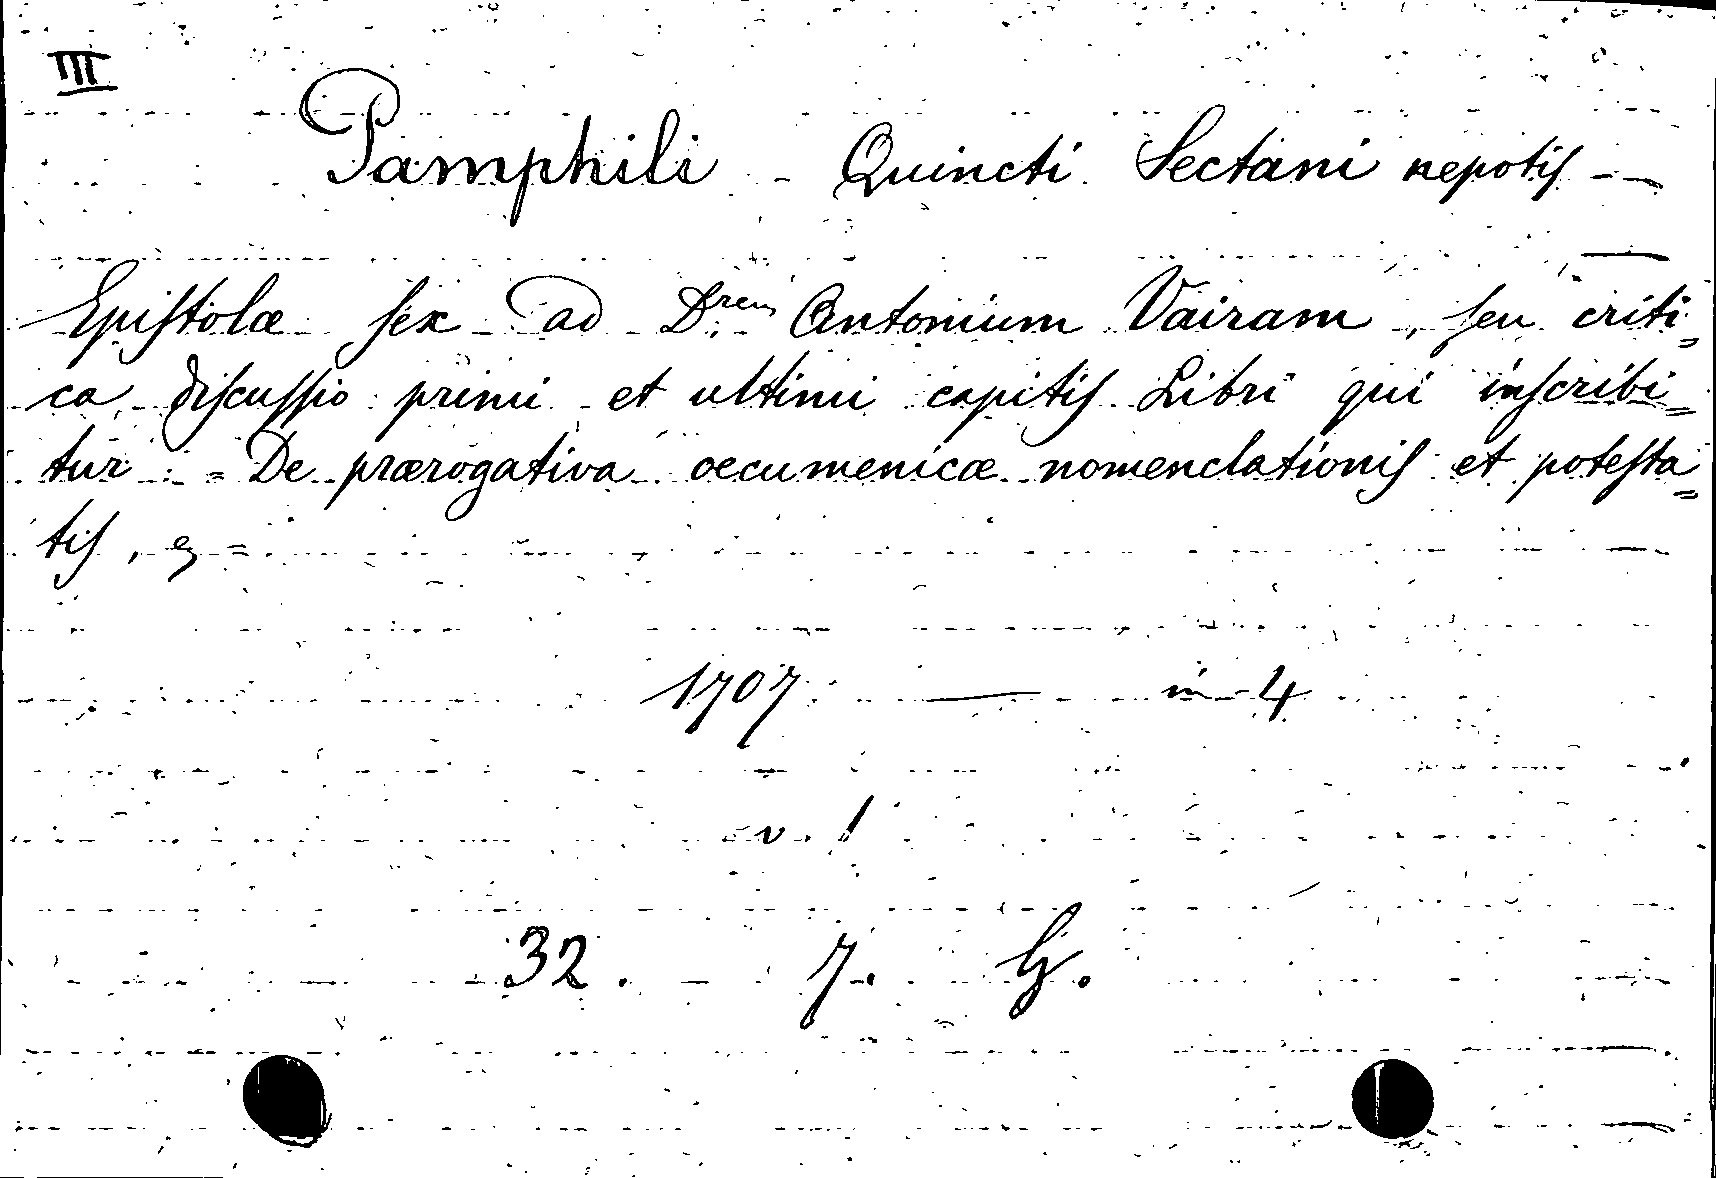 III
Pamphili - Quincti Sectani nepotis -
Epistolæ sex ad D.rem Antonium Vairam, seu criti=
ca discussio primi et ultimi capitis Libri qui inscribi=
tur = De prærogativa oecumenicæ nomenclationis et potesta=
tis, &=
1707 — in-4
v. 1
32. 7. G.